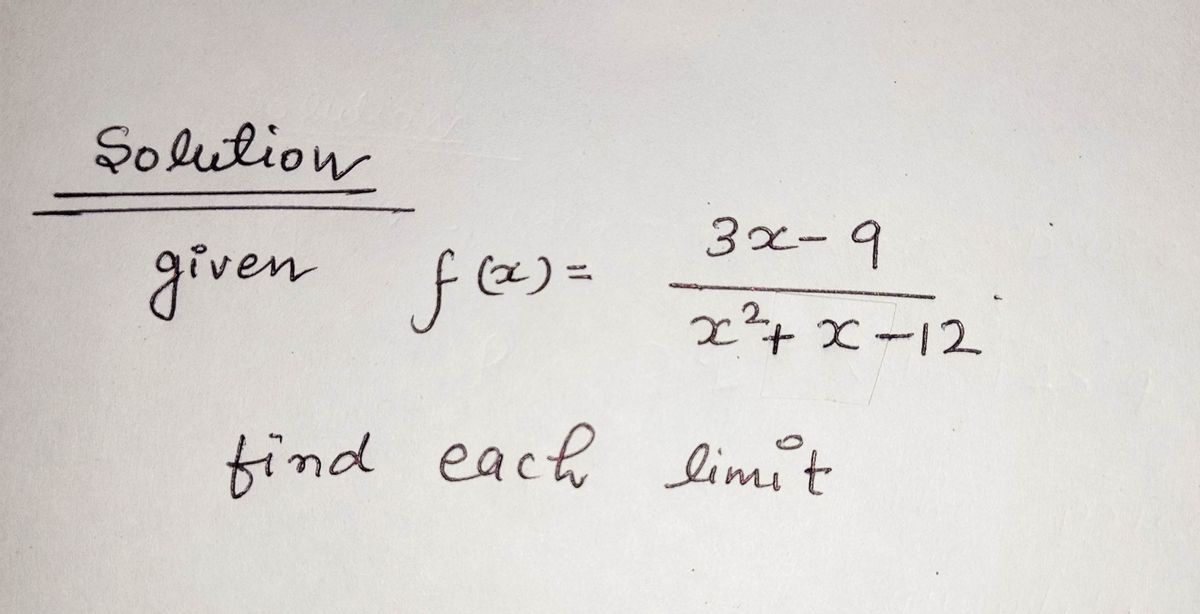 Solution
given f(x) = 3x-9 / x²+x-12
find each limit